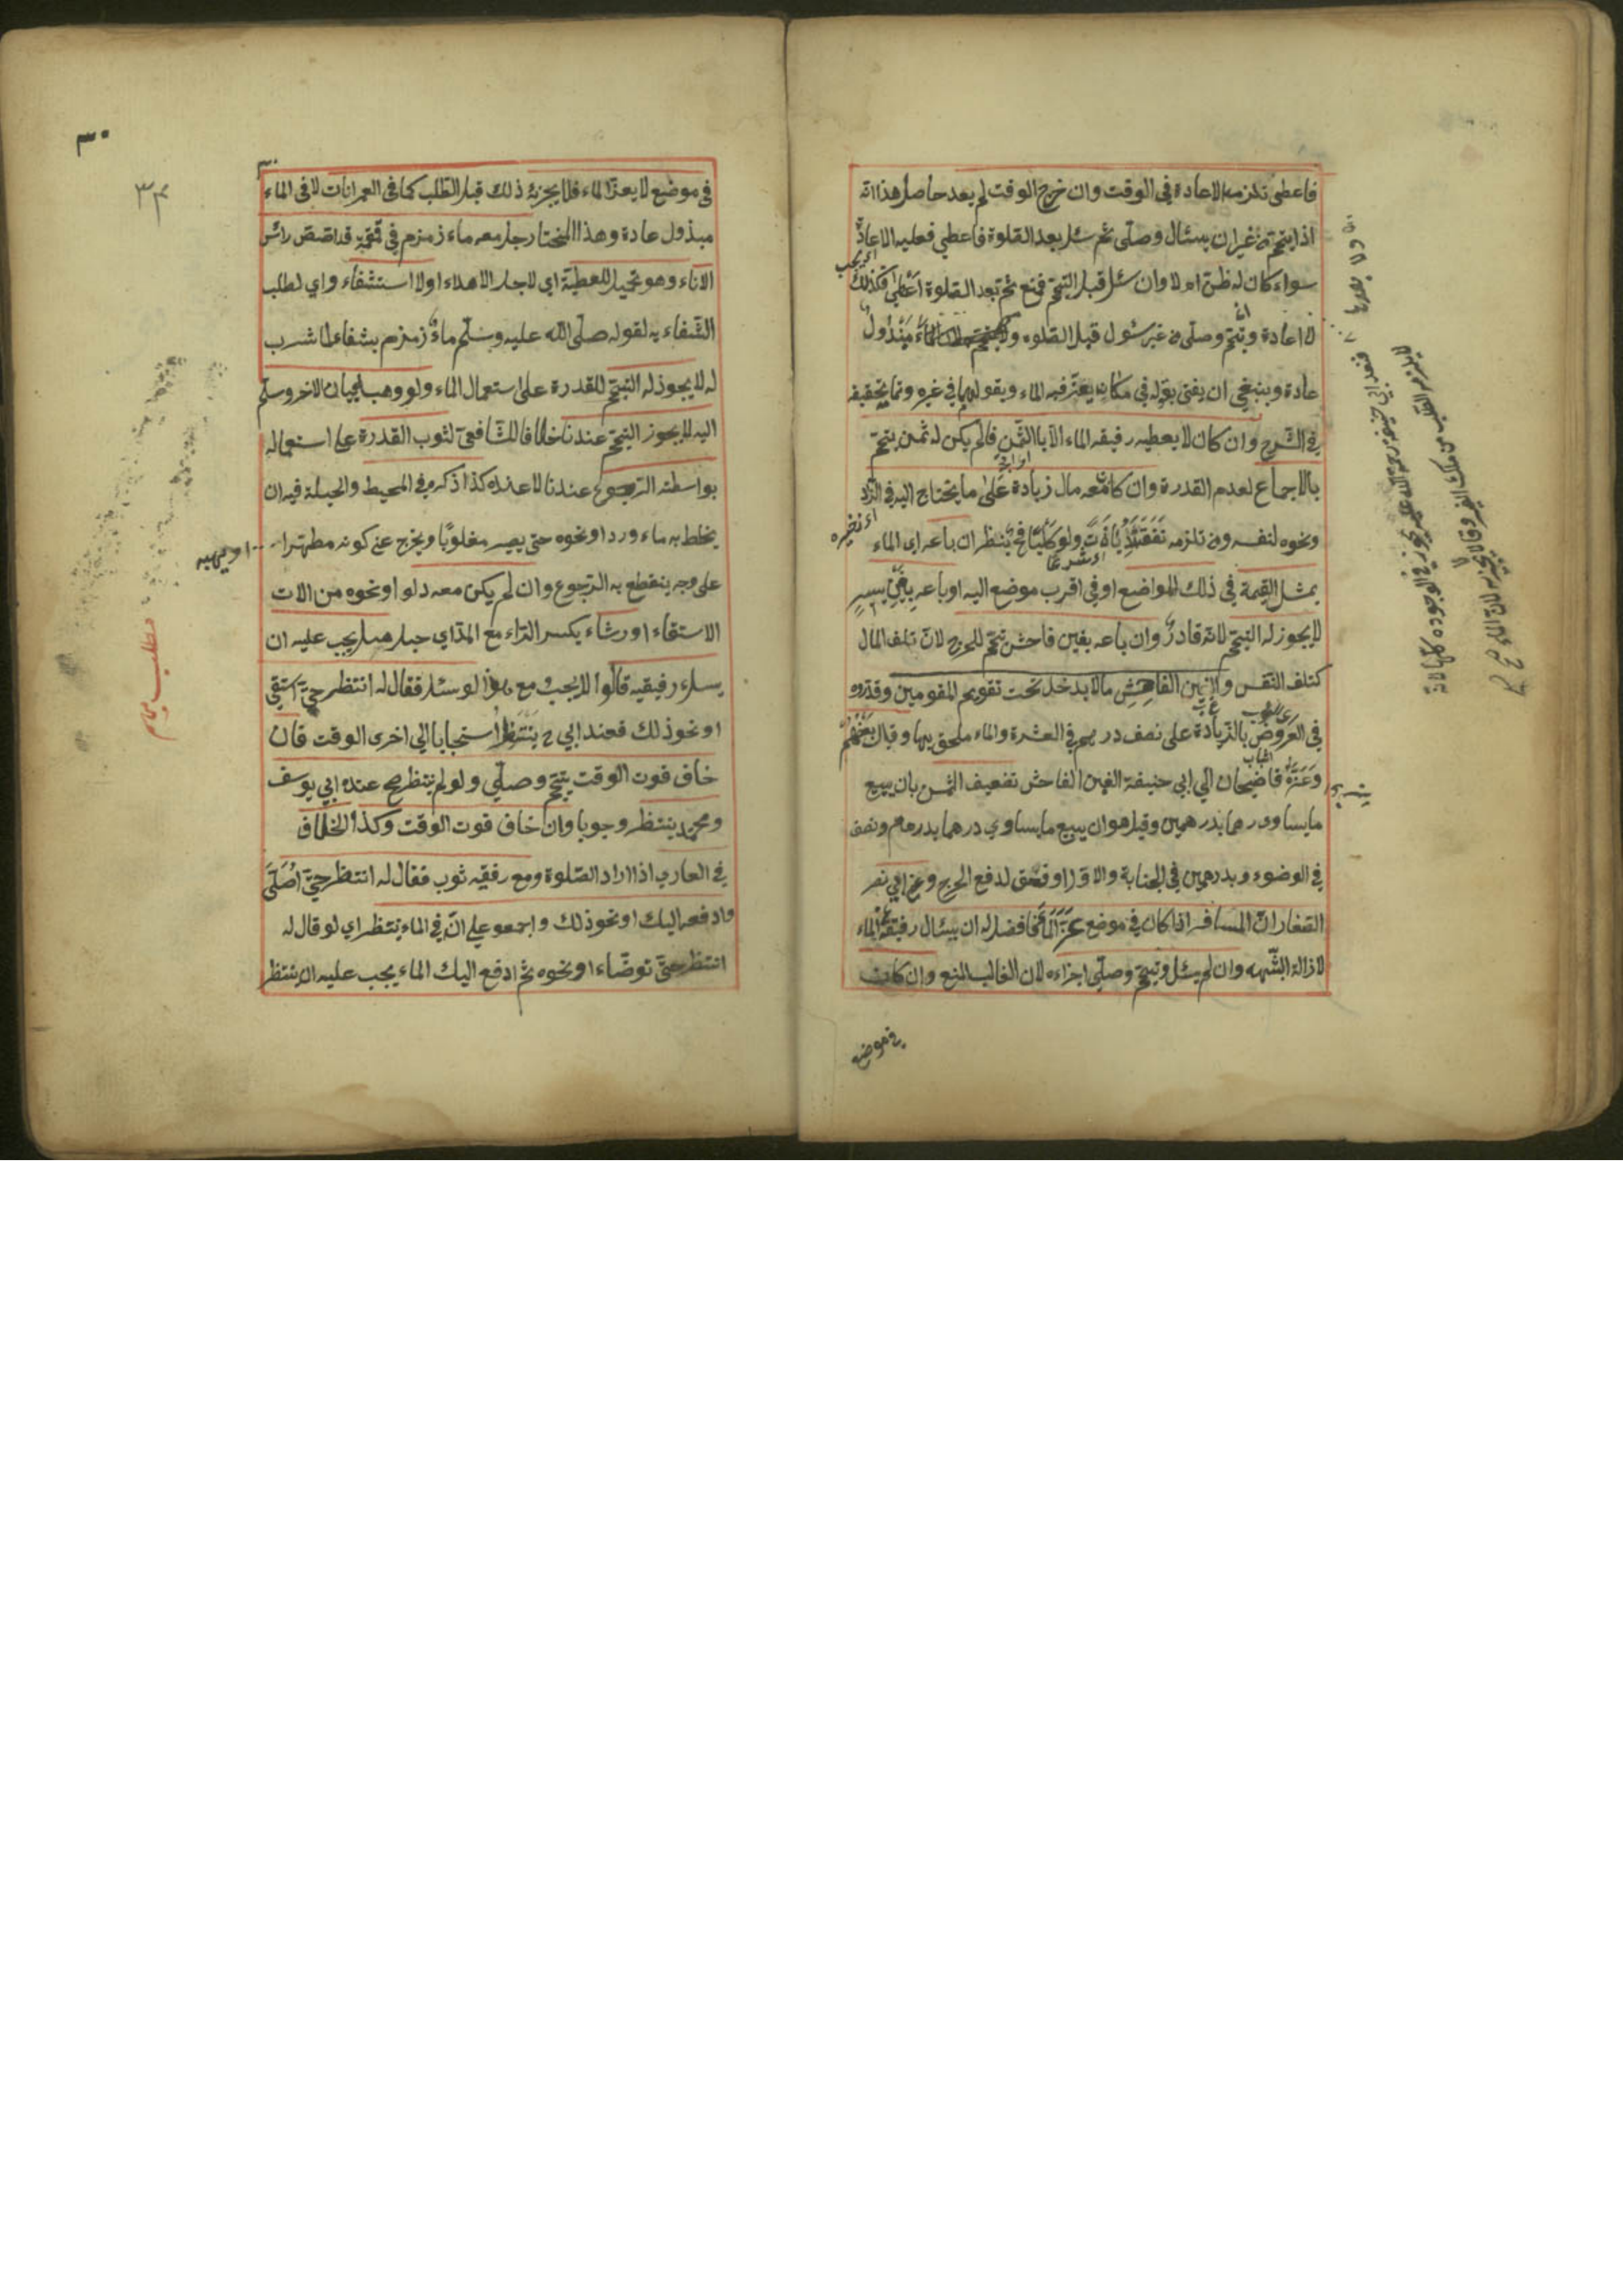 فاعطى تلزمه الاعادة في الوقت وان خرج الوقت لم يعد حاصل هذا انه
اذا تيمم من غير ان يسئال وصلّى ثم سئل بعد الصلوة فاعطي فعليه الاعادة
سواء كان له ظن ام لا وان سئل قبل التيمم فمنع ثم بعد الصلوة اعطى فكذلك
لا اعادة وتيمم وصلّى من غير سئول قبل الصلوه الماء مبذول
عادة وينبغي ان يفتى بقوله في مكان يعز فيه الماء وبقولهما في غيره وتمام تحقيقه
في الشرح وان كان لا يعطيه رفيقه الماء الّا باالثمن فالم يكن له ثمن يتيمم
بالاجماع لعدم القدرة وان كان معه مال زيادة على ما يحتاج اليه في الزاد
ونحوه لنفسه ومن تلزمه نفقته ولو كلبًا ينظر ان باعه اي الماء
بمثل القيمة في ذلك المواضع او في اقرب موضع اليه او باعه بغبن يسير
لا يجوز له التيمم لانه قادر وان باعه بغبن فاحش تيمم للحرج لان تلف المال
كتلف النفس والغبن الفاحش مالا يدخل تحت تقويم المقومين وقدروه
في العروض بالزيادة على نصف درهم في العشرة والماء ملحق بها وقال بعضهم
قاضيخان الي ابي حنيفة الغبن الفاحش تضعيف الثمن بان يبيع
ما يساوي درهما بدرهمين وقيل هو ان يبيع ما يساوي درهما بدرهم ونصف
في الوضوء وبدرهمين في الجنابة والاول اوفق لدفع الحرج وعن ابي نصر
الصفار ان المسافر اذا كان في موضع عزة الماء فافضل له ان يسئال رفيقه الماء
لازالة الشبهه وان لم يسئل وتيمم وصلّى اجزاءه لان الغالب المنع وان كان
في موضع
في موضع لا يعز الماء فلا يجزئه ذلك قبل الطلب كما في العمرانات لا في الماء
مبذول عادة وهذا المختار رجل معه ماء زمزم في قمقمة قد رصص رائس
الاناء وهو يحمل للعطية اي لاجل الاهداء او لا استشفاء واي لطلب
الشفاء به لقوله صلّى الله عليه وسلّم ماء زمزم بشفاء لما شرب
له لا يجوز له التيمم للقدرة على ستعمال الماء ولو وهب الاخر وسلم
اليه لا يجوز التيمم عندنا خلافا للشافعي لثوب القدرة على استعماله
بواسطة الرجوع عندنا لا عنده كذا ذكره في المحيط والحيلة فيه ان
يخلط به ماء ورد او نحوه حتى يصير مغلوبًا ويخرج عن كونه مطهرا
على وجه ينقطع به الرجوع وان لم يكن معه دلو او نحوه من الات
الاستقاء او رشاء بكسر الراء مع المد اي حبل هل يجب عليه ان
يسئل رفيقيه قالوا لا يجب لو سئل فقال له انتظر حتى استقي
او نحو ذلك فعند ابي ح ينتظر استحبابا الي اخرى الوقت فان
خاف فوت الوقت يتيمم وصلّي ولو لم ينتظر صح عنده ابي يوسف
ومحمد ينتظر وجوبا وان خاف فوت الوقت وكذا الخلاف
في العاري اذا اراد الصلوة ومع رفقيه ثوب فقال له انتظر حتى اصلى
وادفعه اليك او نحو ذلك واجمعو على انّ في الماء ينتظر اي لو قال له
انتظر حتى توضّاء او نحوه ثم ادفع اليك الماء يجب عليه ان ينتظر
٣٠
٣٤